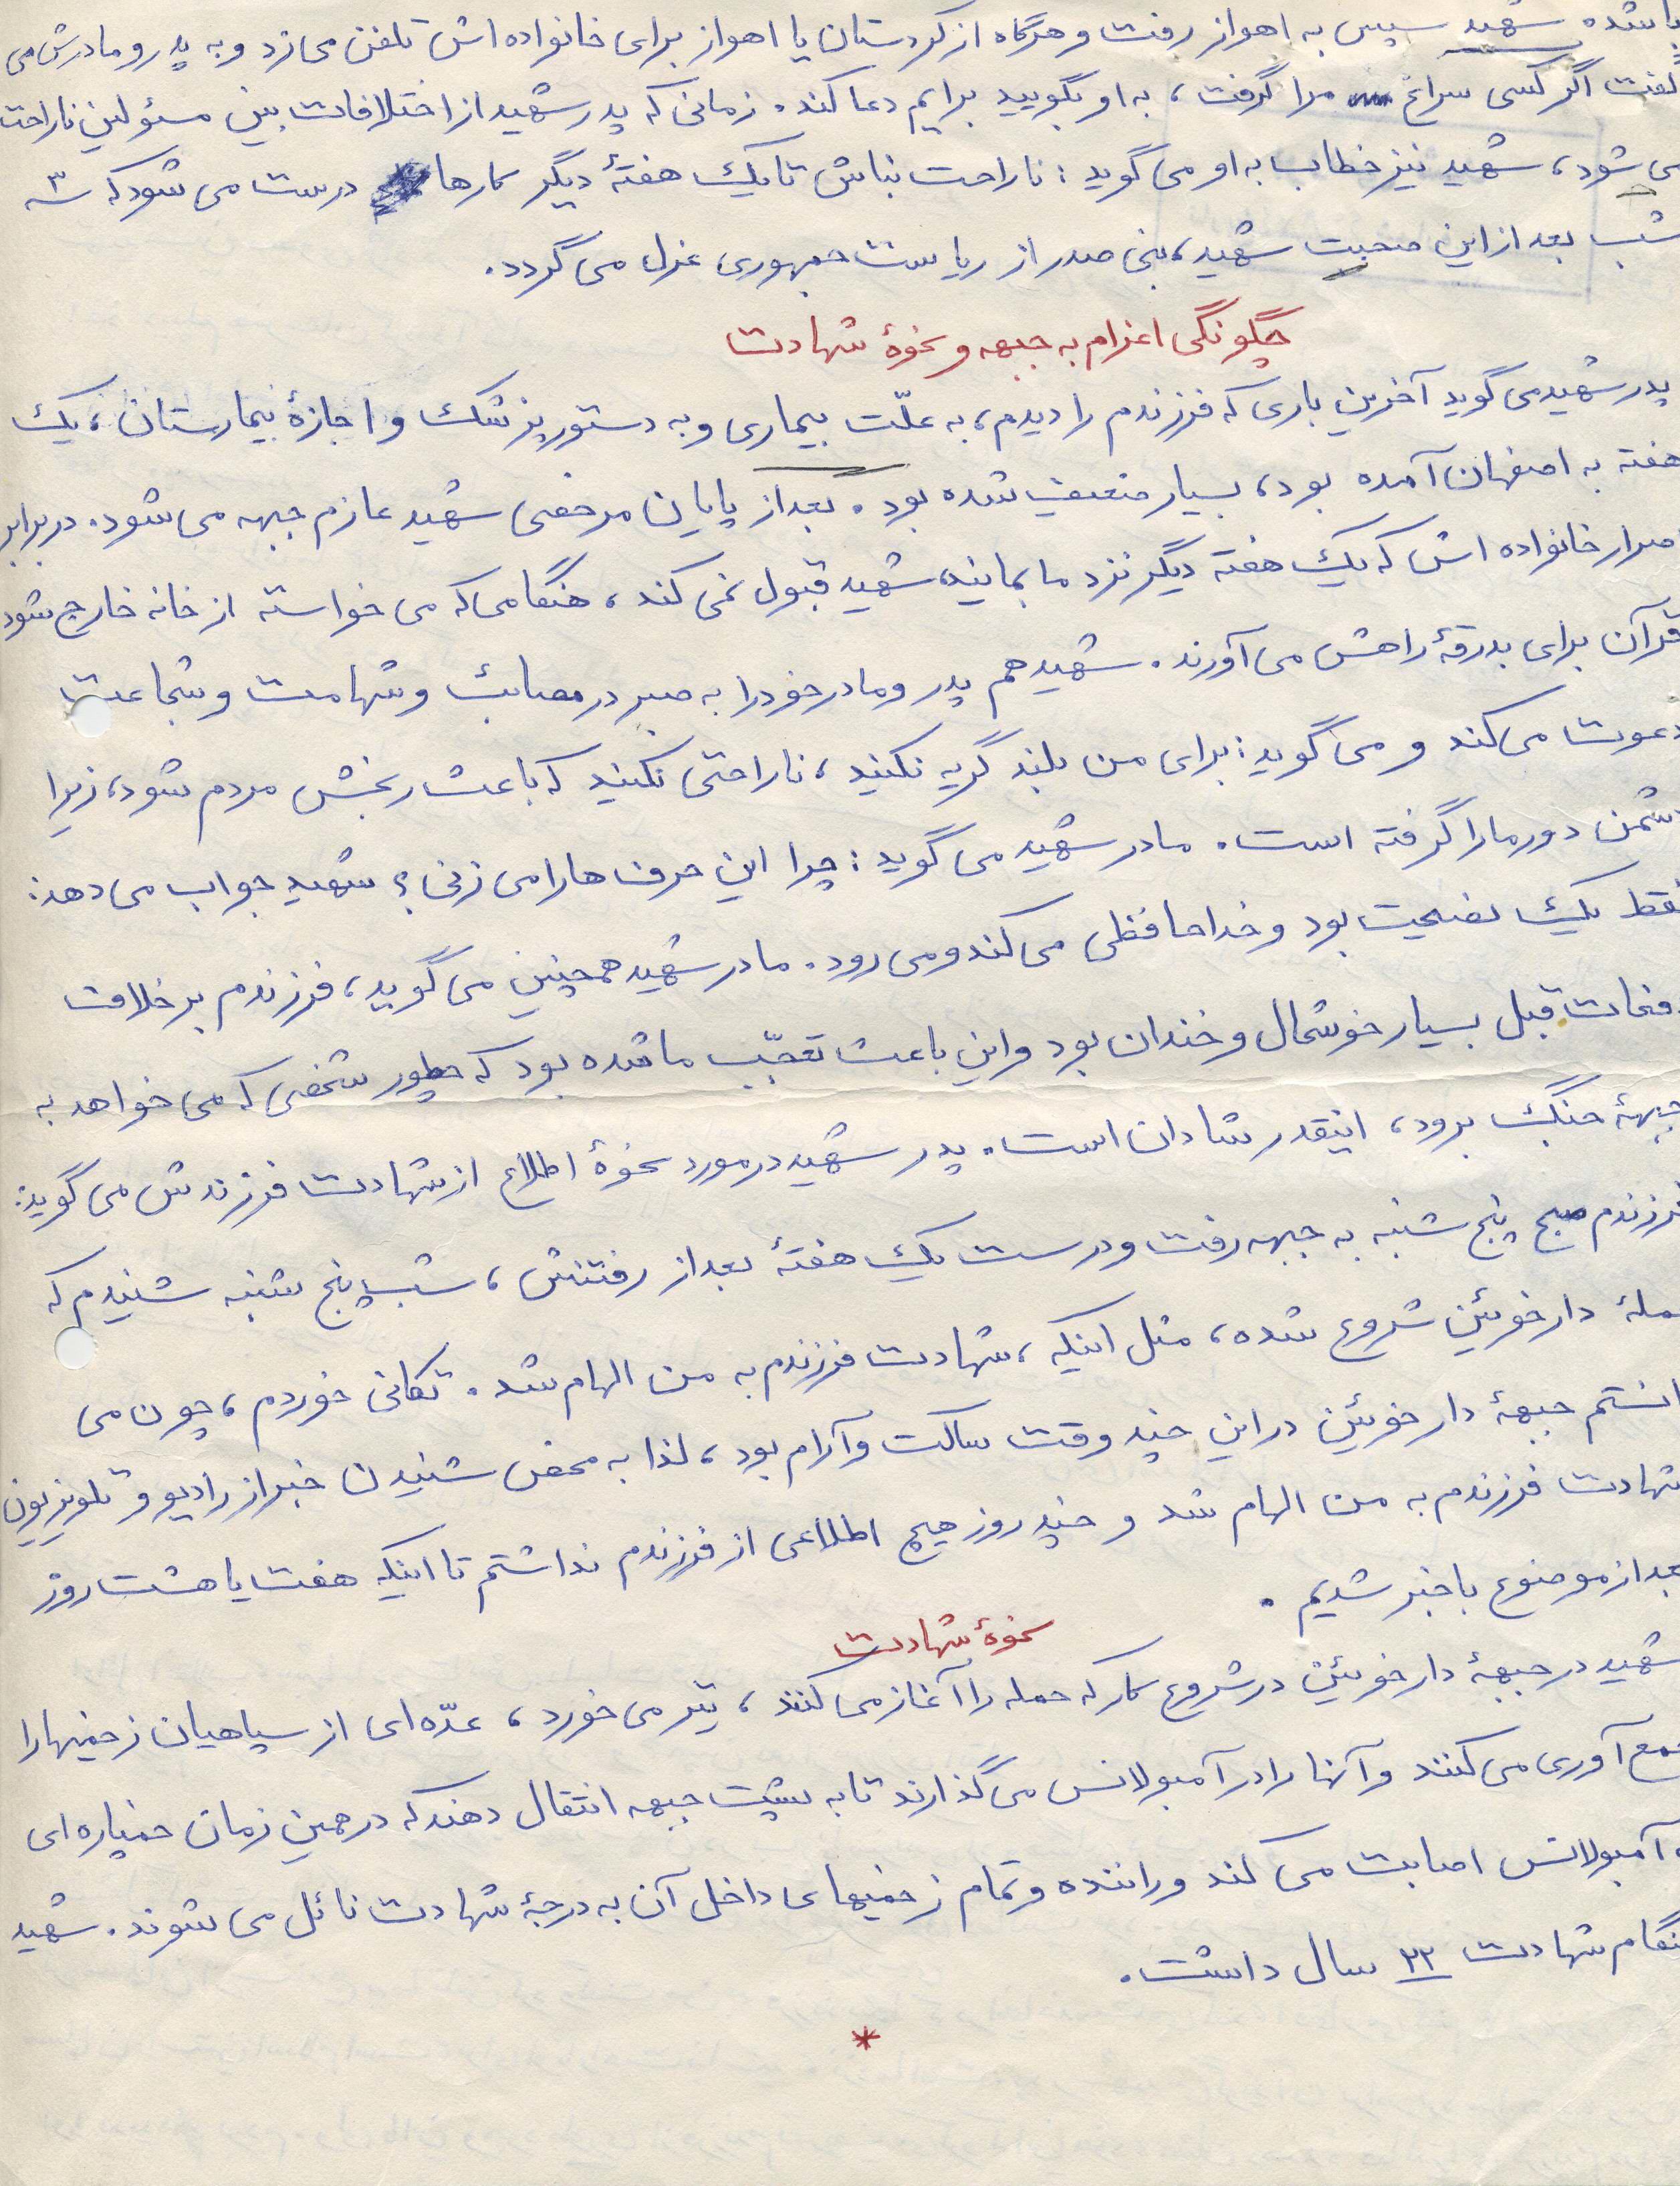 باشده شهید سپس به اهواز رفت و هرگاه از کردستان یا اهواز برای خانواده اش تلفن می زد و به پدر و مادرش می
گفت اگر کسی سراغ مرا گرفت، به او بگویید برایم دعا کند. زمانی که پدر شهید از اختلافات بین مسئولین ناراحت
می شود، شهید نیز خطاب به او می گوید: ناراحت نباش تا یک هفتهٔ دیگر کارها درست می شود که ۳
شب بعد از این صحبت شهید، بنی صدر از ریاست جمهوری عزل می گردد.
چگونگی اعزام به جبهه و نحوهٔ شهادت
پدر شهید می گوید آخرین باری که فرزندم را دیدم، به علّت بیماری و به دستور پزشک و اجازهٔ بیمارستان، یک
هفته به اصفهان آمده بود، بسیار ضعیف شده بود. بعد از پایان مرخصی شهید عازم جبهه می شود. در برابر
اصرار خانواده اش که یک هفته دیگر نزد ما بمانید، شهید قبول نمی کند، هنگامی که می خواسته از خانه خارج شود
قرآن برای بدرقهٔ راهش می آورند. شهید هم پدر و مادر خود را به صبر در مصائب و شهامت و شجاعت
دعوت می کند و می گوید: برای من بلند گریه نکنید، ناراحتی نکنید که باعث رنجش مردم شود، زیرا
دشمن دور ما را گرفته است. مادر شهید می گوید: چرا این حرف ها را می زنی؟ شهید جواب می دهد:
فقط یک نصیحت بود و خداحافظی می کند و می رود. مادر شهید همچنین می گوید، فرزندم بر خلاف
دفعات قبل بسیار خوشحال و خندان بود و این باعث تعجّب ما شده بود که چطور شخصی که می خواهد به
جبههٔ جنگ برود، اینقدر شادان است. پدر شهید در مورد نحوهٔ اطلاع از شهادت فرزندش می گوید:
فرزندم صبح پنج شنبه به جبهه رفت و درست یک هفتهٔ بعد از رفتنش، شب پنج شنبه شنیدم که
حملهٔ دارخوئین شروع شده، مثل اینکه، شهادت فرزندم به من الهام شد. تکانی خوردم، چون می
دانستم جبههٔ دارخوئین در این چند وقت ساکت و آرام بود، لذا به محض شنیدن خبر از رادیو و تلویزیون
شهادت فرزندم به من الهام شد و چند روز هیچ اطلاعی از فرزندم نداشتم تا اینکه هفت یا هشت روز
بعد از موضوع باخبر شدیم.
نحوهٔ شهادت
شهید در جبههٔ دارخوئین در شروع کار که حمله را آغاز می کنند، تیر می خورد، عدّه ای از سپاهیان زخمیها را
جمع آوری می کنند و آنها را در آمبولانس می گذارند تا به پشت جبهه انتقال دهند که در همین زمان خمپاره ای
آمبولانس اصابت می کند و راننده و تمام زخمیهای داخل آن به درجهٔ شهادت نائل می شوند. شهید
هنگام شهادت ۲۲ سال داشت.
*